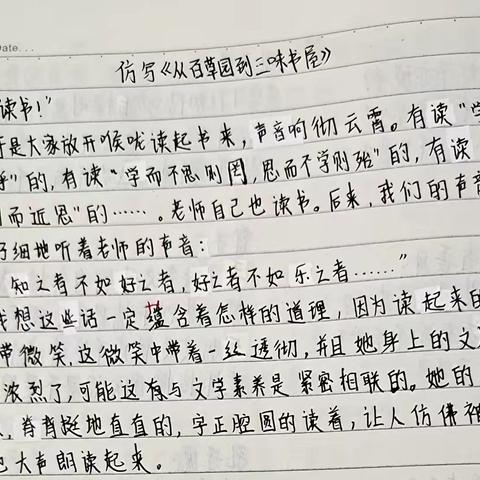 Date...
仿写《从百草园到三味书屋》
读书!"
是大家放开喉咙读起书来，声音响彻云霄。有读"学
"的，有读"学而不思则罔，思而不学则殆"的，有读
而近思"的……。老师自己也读书。后来，我们的声音
仔细地听着老师的声音：
知之者不如好之者，好之者不如乐之者……"
我想这些话一定蕴含着怎样的道理，因为读起来的
带微笑，这微笑中带着一丝透彻，并且她身上的文
浓烈了，可能这有与文学素养是紧密相联的。她的
，脊背挺地直直的，字正腔圆的读着，让人仿佛被
也大声朗读起来。